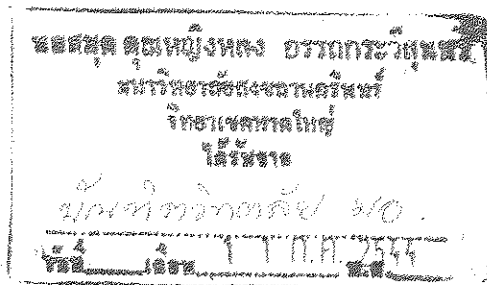 หอสมุด คุณหญิงหลง อรรถกระวีสุนทร
มหาวิทยาลัยสงขลานครินทร์
วิทยาเขตหาดใหญ่
ได้รับจาก
บัณฑิตวิทยาลัย มอ.
วันที่ เดือน 11 ก.ค. 2555 พ.ศ.